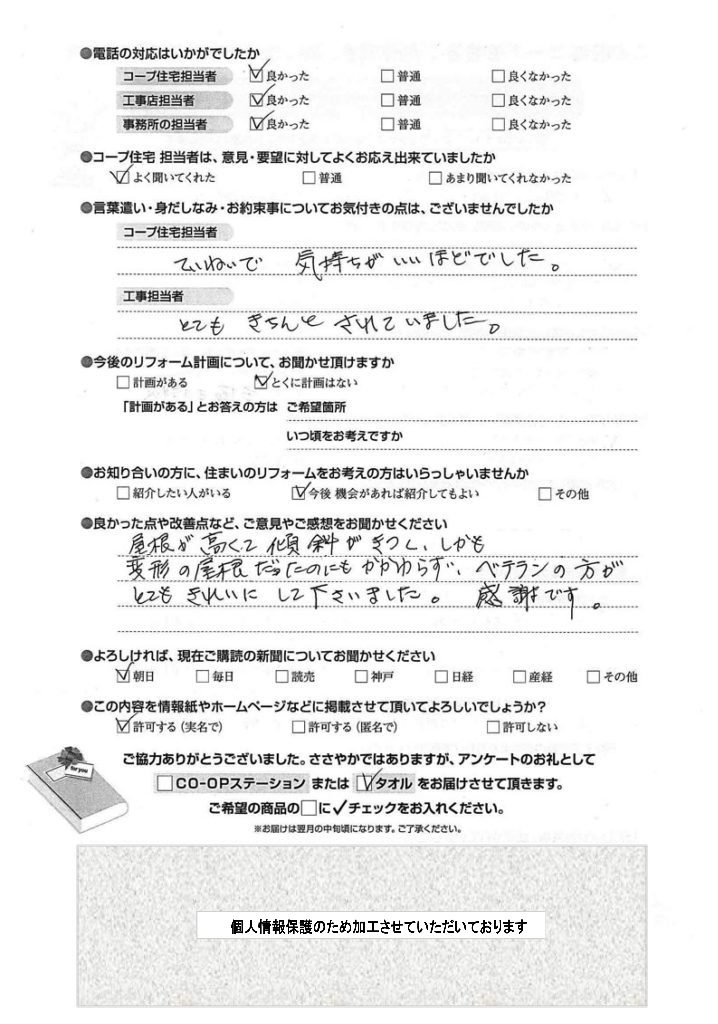 ●電話の対応はいかがでしたか
コープ住宅担当者 ☑良かった □普通 □良くなかった
工事店担当者 ☑良かった □普通 □良くなかった
事務所の担当者 ☑良かった □普通 □良くなかった
●コープ住宅 担当者は、意見・要望に対してよくお応え出来ていましたか
☑よく聞いてくれた □普通 □あまり聞いてくれなかった
●言葉遣い・身だしなみ・お約束事についてお気付きの点は、ございませんでしたか
コープ住宅担当者
ていねいで 気持ちがいいほどでした。
工事担当者
とても きちんと されていました。
●今後のリフォーム計画について、お聞かせ頂けますか
□計画がある ☑とくに計画はない
「計画がある」とお答えの方は ご希望箇所
いつ頃をお考えですか
●お知り合いの方に、住まいのリフォームをお考えの方はいらっしゃいませんか
□紹介したい人がいる ☑今後 機会があれば紹介してもよい □その他
●良かった点や改善点など、ご意見やご感想をお聞かせください
屋根が高くて傾斜がきつく、しかも
変形の屋根だったのにもかかわらず、ベテランの方が
とても きれいに して下さいました。 感謝です。
●よろしければ、現在ご購読の新聞についてお聞かせください
☑朝日 □毎日 □読売 □神戸 □日経 □産経 □その他
●この内容を情報紙やホームページなどに掲載させて頂いてよろしいでしょうか?
☑許可する(実名で) □許可する(匿名で) □許可しない
for you
ご協力ありがとうございました。ささやかではありますが、アンケートのお礼として
□CO-OPステーション または ☑タオル をお届けさせて頂きます。
ご希望の商品の□に✓チェックをお入れください。
※お届けは翌月の中旬頃になります。ご了承ください。
個人情報保護のため加工させていただいております